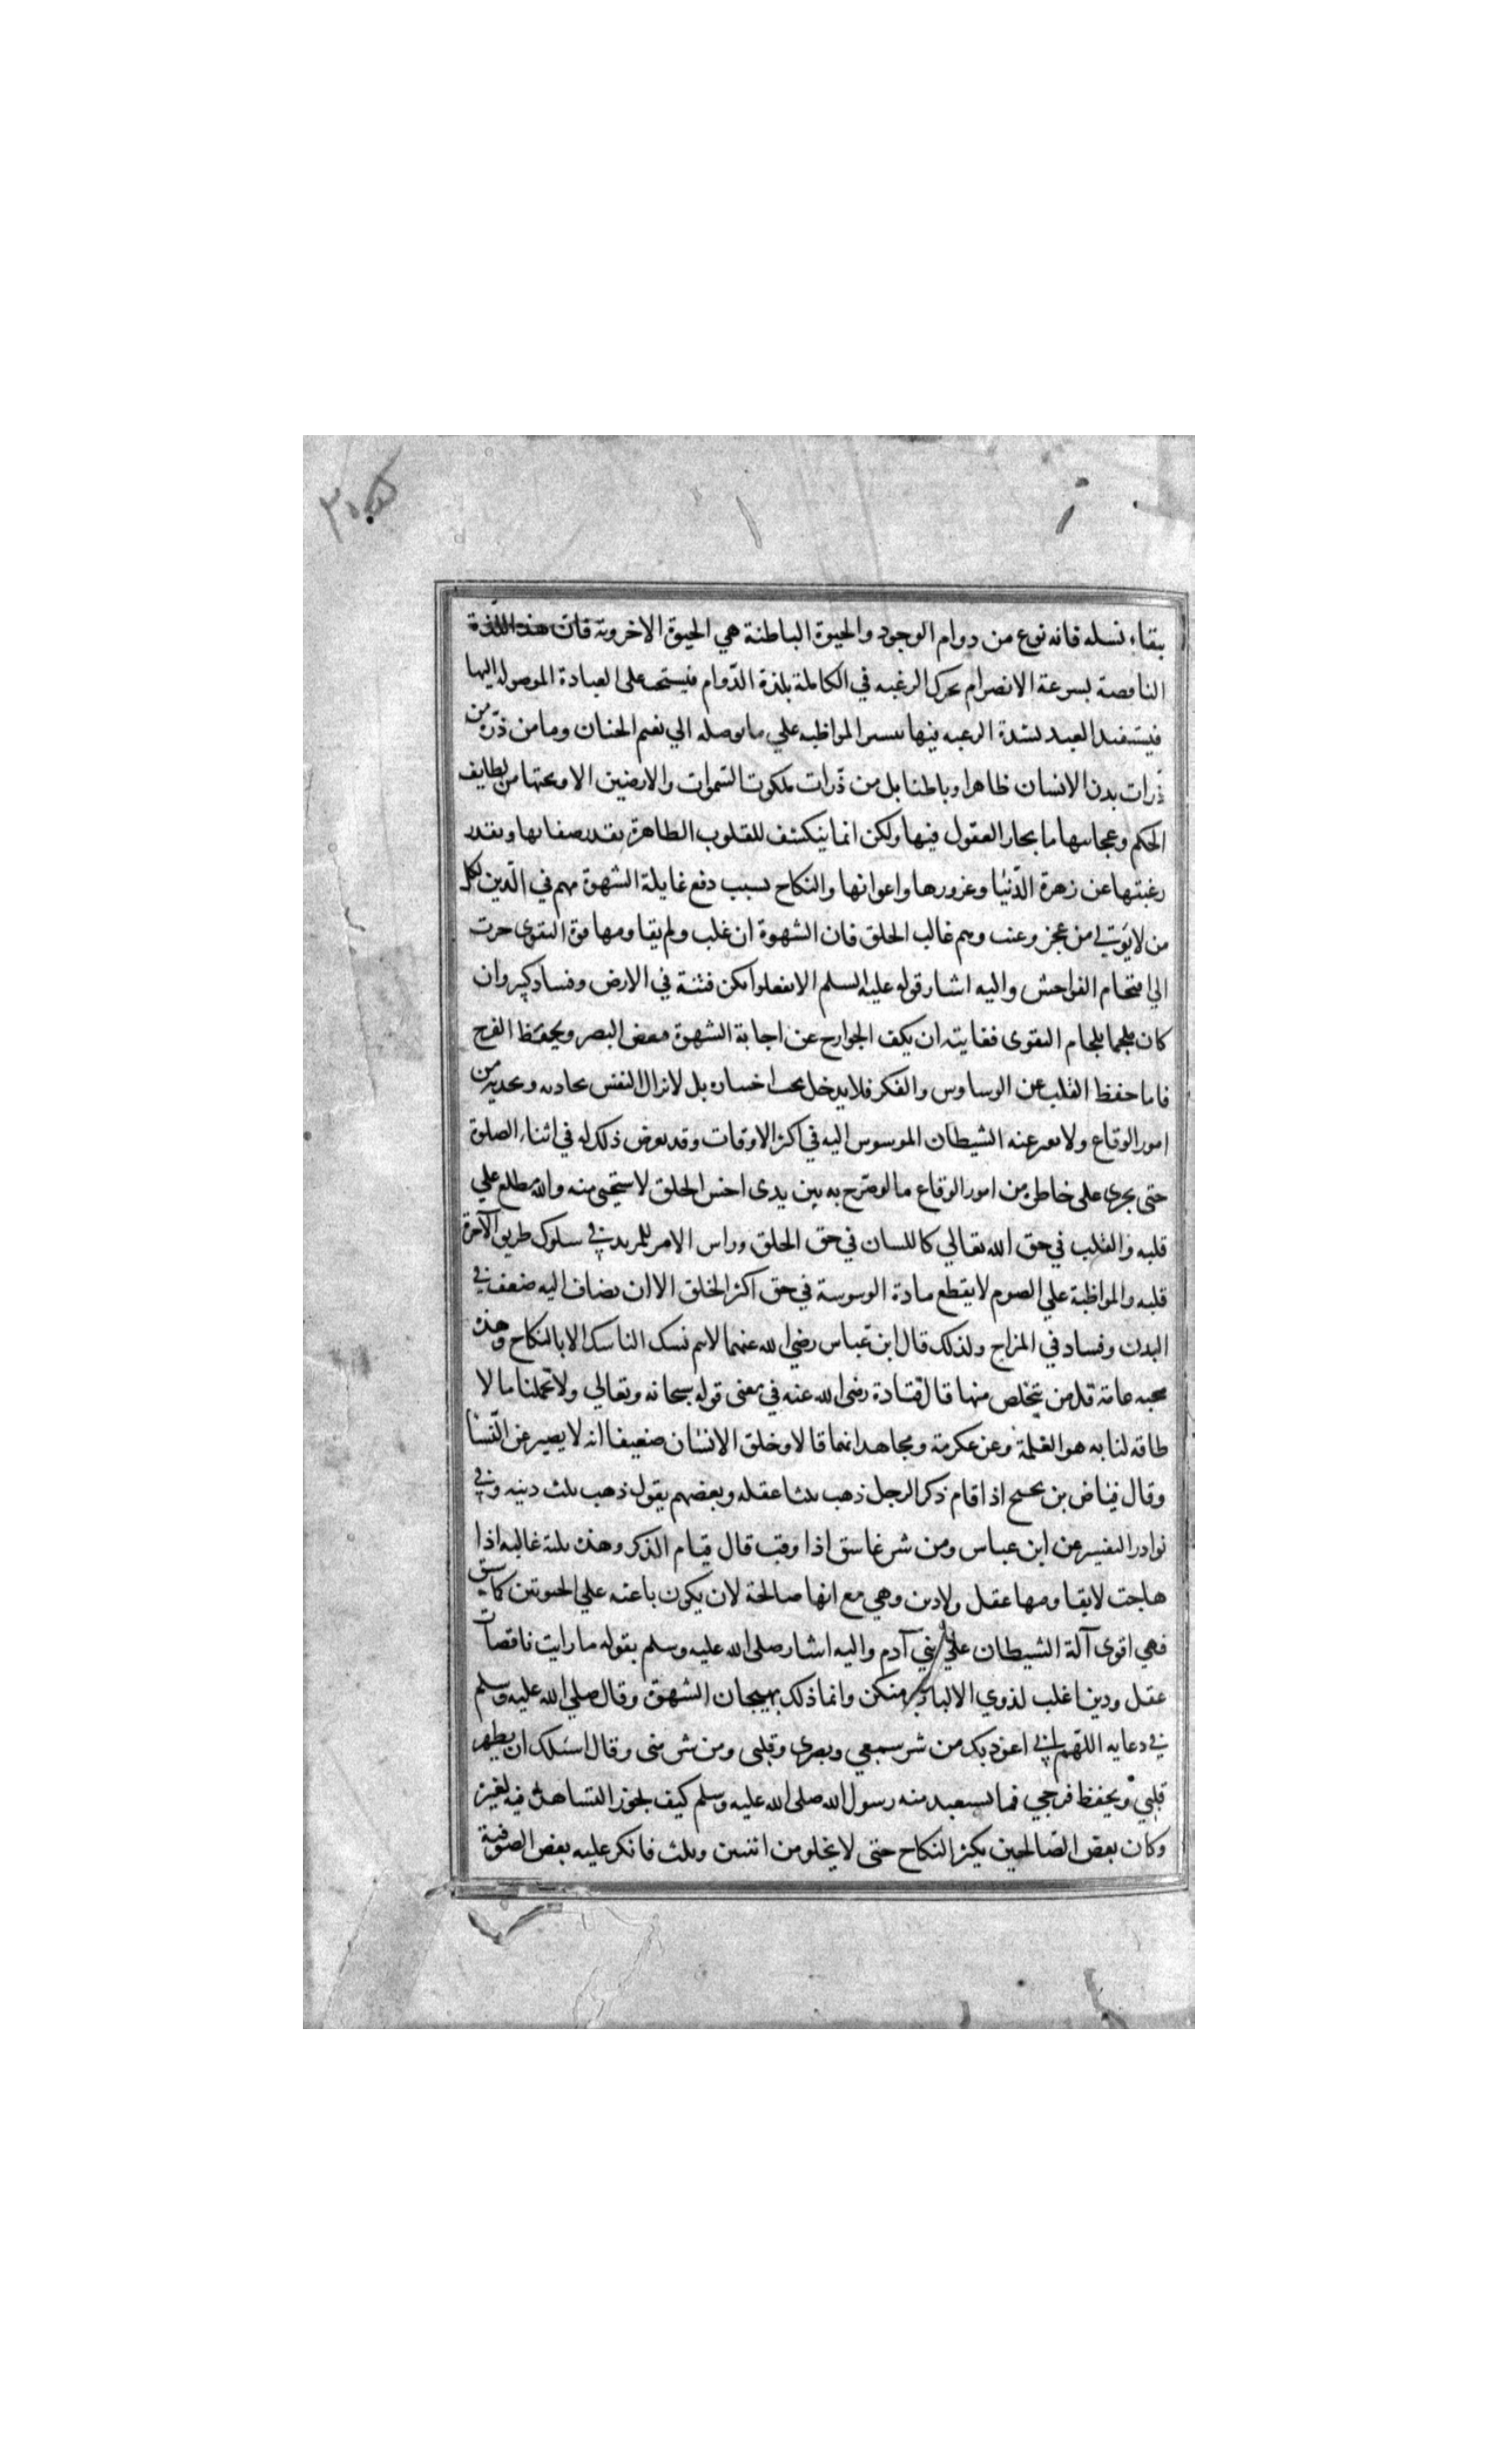 بقاء نسله فانه نوع من دوام الوجود والحيوة الباطنة هي الحيوة الاخروية فان هذه اللذة
الناقصة بسرعة الانصرام يحرك الرغبه في الكاملة بلذة الدّوام فيستحث على العبادة الموصولة اليها
فيستفيد العبد لشدة الرغبه فيها تيسر المواظبه علي ما يوصله الي نعيم الجنان وما من ذرّة من
ذّرات بدن الانسان ظاهرا وباطنا بل من ذّرات ملكوت السّموات والارضين الا وتحتها من لطايف
الحكم وعجايبها ما يحار العقول فيها ولكن انما ينكشف للقلوب الطاهرة بقدر صفايها وبقدر
رغبتها عن زهرة الدّنيا وغرورها واعوانها والنكاح بسبب دفع غايلة الشهوة مهم في الّدين لكل
من لا يؤتي من عجز وعنت وهم غالب الخلق فان الشهوة ان غلب ولم يقاومها قوة التقوى جرت
الي اقتحام الفواحش واليه اشار قوله عليه السلم الا تفعلوا تكن فتنة في الارض وفساد كبير وان
كان ملجما بلجام التقوى فغايته ان يكف الجوارح عن اجابة الشهوة فغض البصر ويحفظ الفرج
فاما حفظ القلب عن الوساوس والفكر فلا يدخل تحت اختياره بل لا تزال النفس تحادثه وتحدثه من
امور الوقاع ولا يفتر عنه الشيطان الموسوس اليه في اكثر الاوقات وقد يعرض ذلك له في اثناء الصلوة
حتى يجرى على خاطره من امور الوقاع ما لو صّرح به بين يدى اخس الخلق لاستحيى منه والله مطلع علي
قلبه والقلب في حق الله تعالي كاللسان في حق الخلق وراس الامر للمريد في سلوك طريق الآخرة
قلبه والمواظبة علي الصوم لا يقطع مادة الوسوسة في حق اكثر الخلق الا ان يضاف اليه ضعف في
البدن وفساد في المزاج ولذلك قال ابن عباس رضي الله عنهما لا يتم نسك الناسك الا بالنكاح وهذه
محبه عامة قل من يتخلص منها قال قتادة رضى الله عنه في معنى قوله سبحانه وتعالي ولا تحملنا ما لا
طاقه لنا به هو الغلمة وعن عكرمة ومجاهد انهما قالا وخلق الانسان ضعيفا انه لا يصبر عن النّسا
وقال فياض بن نجيح اذا قام ذكر الرجل ذهب ثلثا عقله وبعضهم يقول ذهب ثلث دينه وفي
نوادر التفسير عن ابن عباس ومن شر غاسق اذا وقب قال قيام الذكر وهذه بلية غالبه اذا
هاجت لا يقاومها عقل ولا دين وهي مع انها صالحة لان يكون باعثه علي الحيوتين كما سبق
فهي اقوى آلة الشيطان علي بني آدم واليه اشار صلى الله عليه وسلم بقوله ما رايت ناقصات
عقل ودين اغلب لذوي الالباب منكن وانما ذلك بهيجان الشهوة وقال صلي الله عليه وسلم
في دعايه اللهّم اني اعوذ بك من شر سمعي وبصرى وقلبى ومن شر منى وقال اسئلك ان يطهر
قلبي ويحفظ فرجي فما يستعيذ منه رسول الله صلى الله عليه وسلم كيف يجوز التساهل فيه لغيره
وكان بعض الصّالحين يكثر النكاح حتى لا يخلو من اثنين وثلث فانكر عليه بعض الصوفية